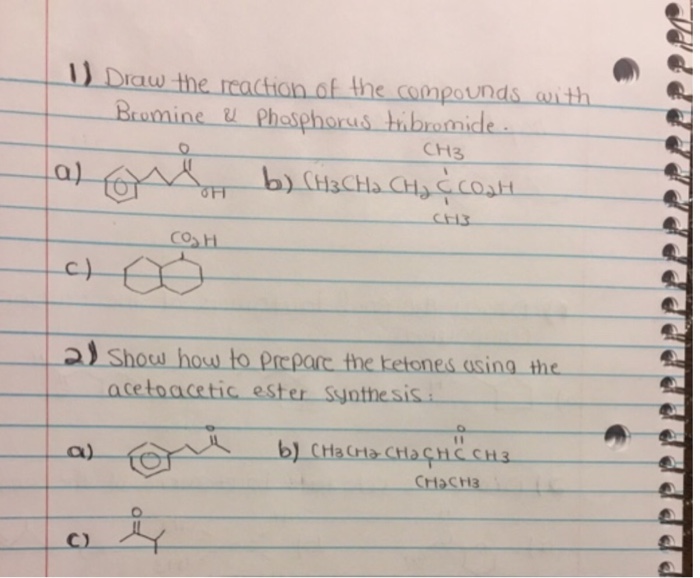 1) Draw the reaction of the compounds with
Bromine & Phosphorus tribromide.
a) O OH
b) CH3CH2CH2CCO2H
CH3
CH3
c) CO2H
2) Show how to prepare the ketones using the
acetoacetic ester synthesis:
a) O
b) CH3CH2CH2CHCCH3
O
CH2CH3
c) O